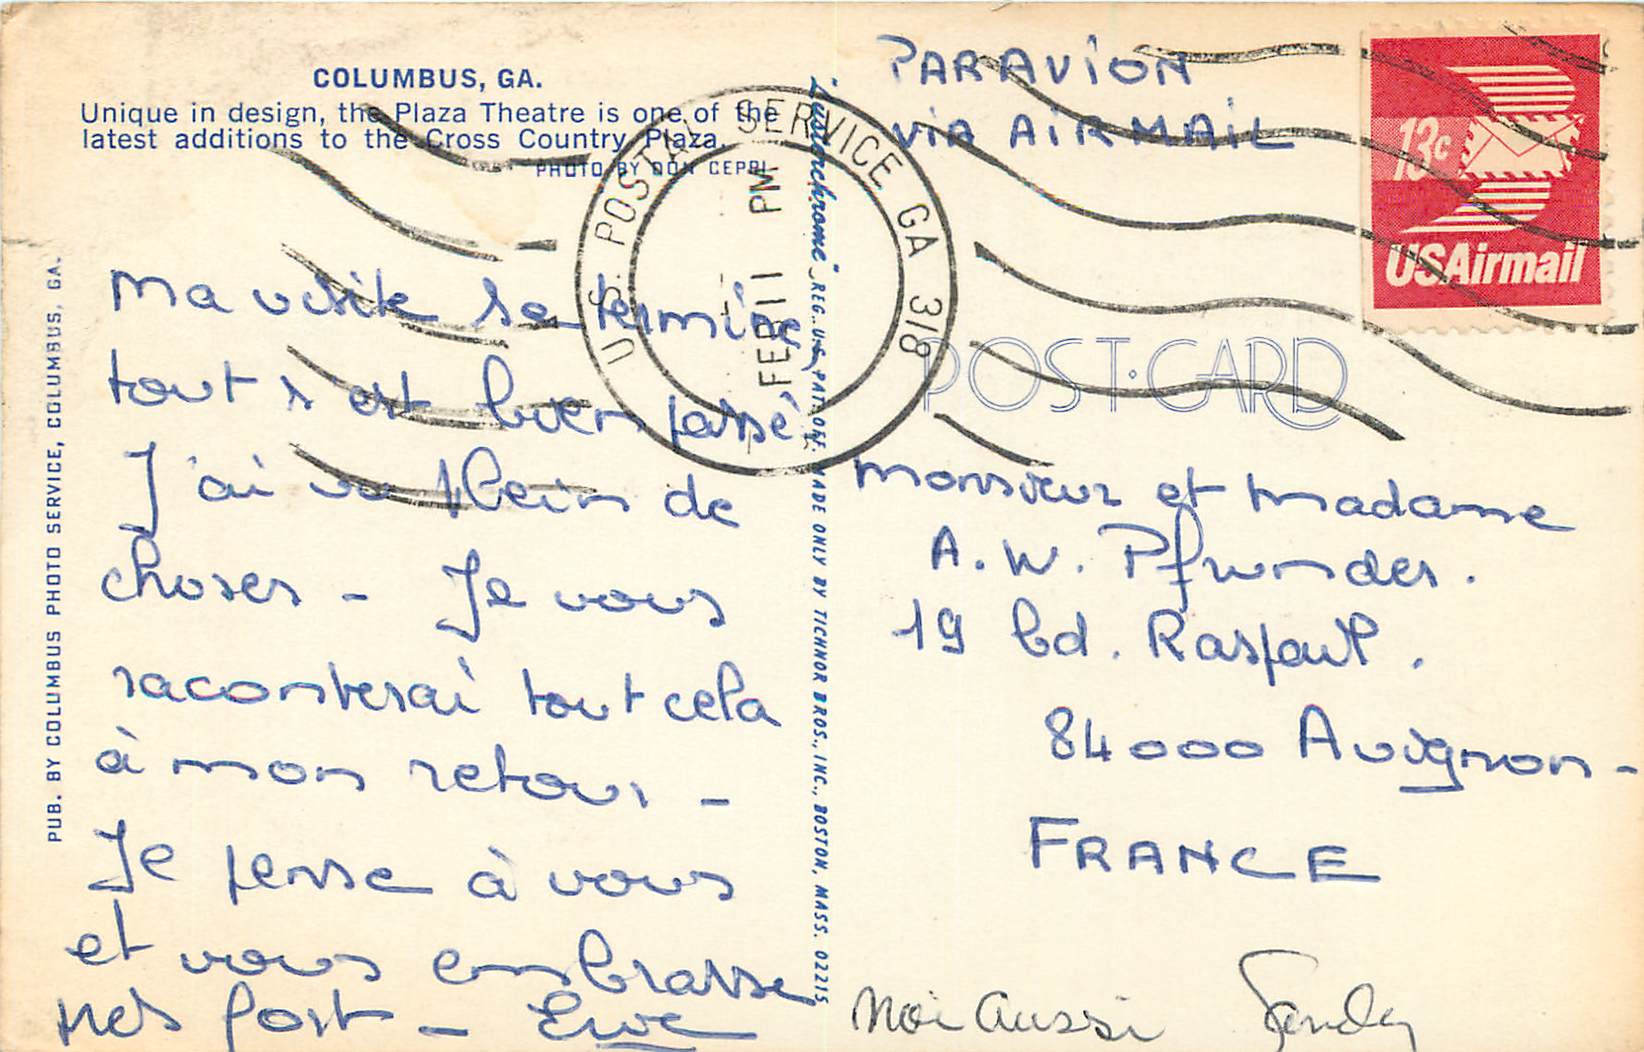 COLUMBUS, GA.
Unique in design, the Plaza Theatre is one of the
latest additions to the Cross Country Plaza.
PHOTO BY DON CEPPI
PUB. BY COLUMBUS PHOTO SERVICE, COLUMBUS, GA.
Ma visite se termine,
tout s'est bien passé
J'ai vu plein de
choses - Je vous
raconterai tout cela
à mon retour -
Je pense à vous
et vous embrasse
très fort -
"Lusterchrome" REG. U.S. PAT. OFF. MADE ONLY BY TICHNOR BROS., INC., BOSTON, MASS. 02215
U.S. POSTAL SERVICE GA 318
FEB 11 PM
PAR AVION
VIA AIRMAIL
13c
USAirmail
POST CARD
Monsieur et Madame
A. W. Pfrunder.
19 bd. Raspail.
84000 Avignon -
FRANCE
Moi aussi Sandy